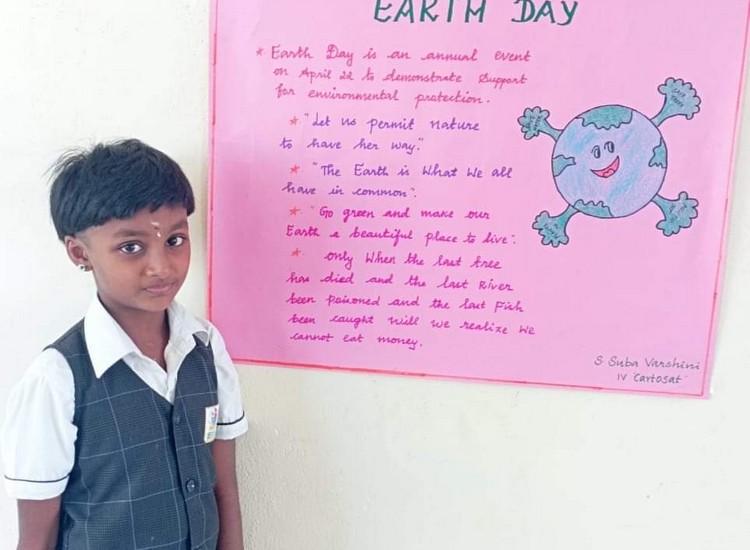 EARTH DAY
* Earth Day is an annual event
on April 22 to demonstrate Support
for environmental protection.
* "Let us permit nature
to have her way."
* "The Earth is What We all
have in common".
* "Go green and make our
Earth a beautiful place to live".
* only When the last tree
has died and the last River
been poisoned and the last Fish
been caught Will we realize We
cannot eat money.
S Suba Varshini
IV 'Cartosat'